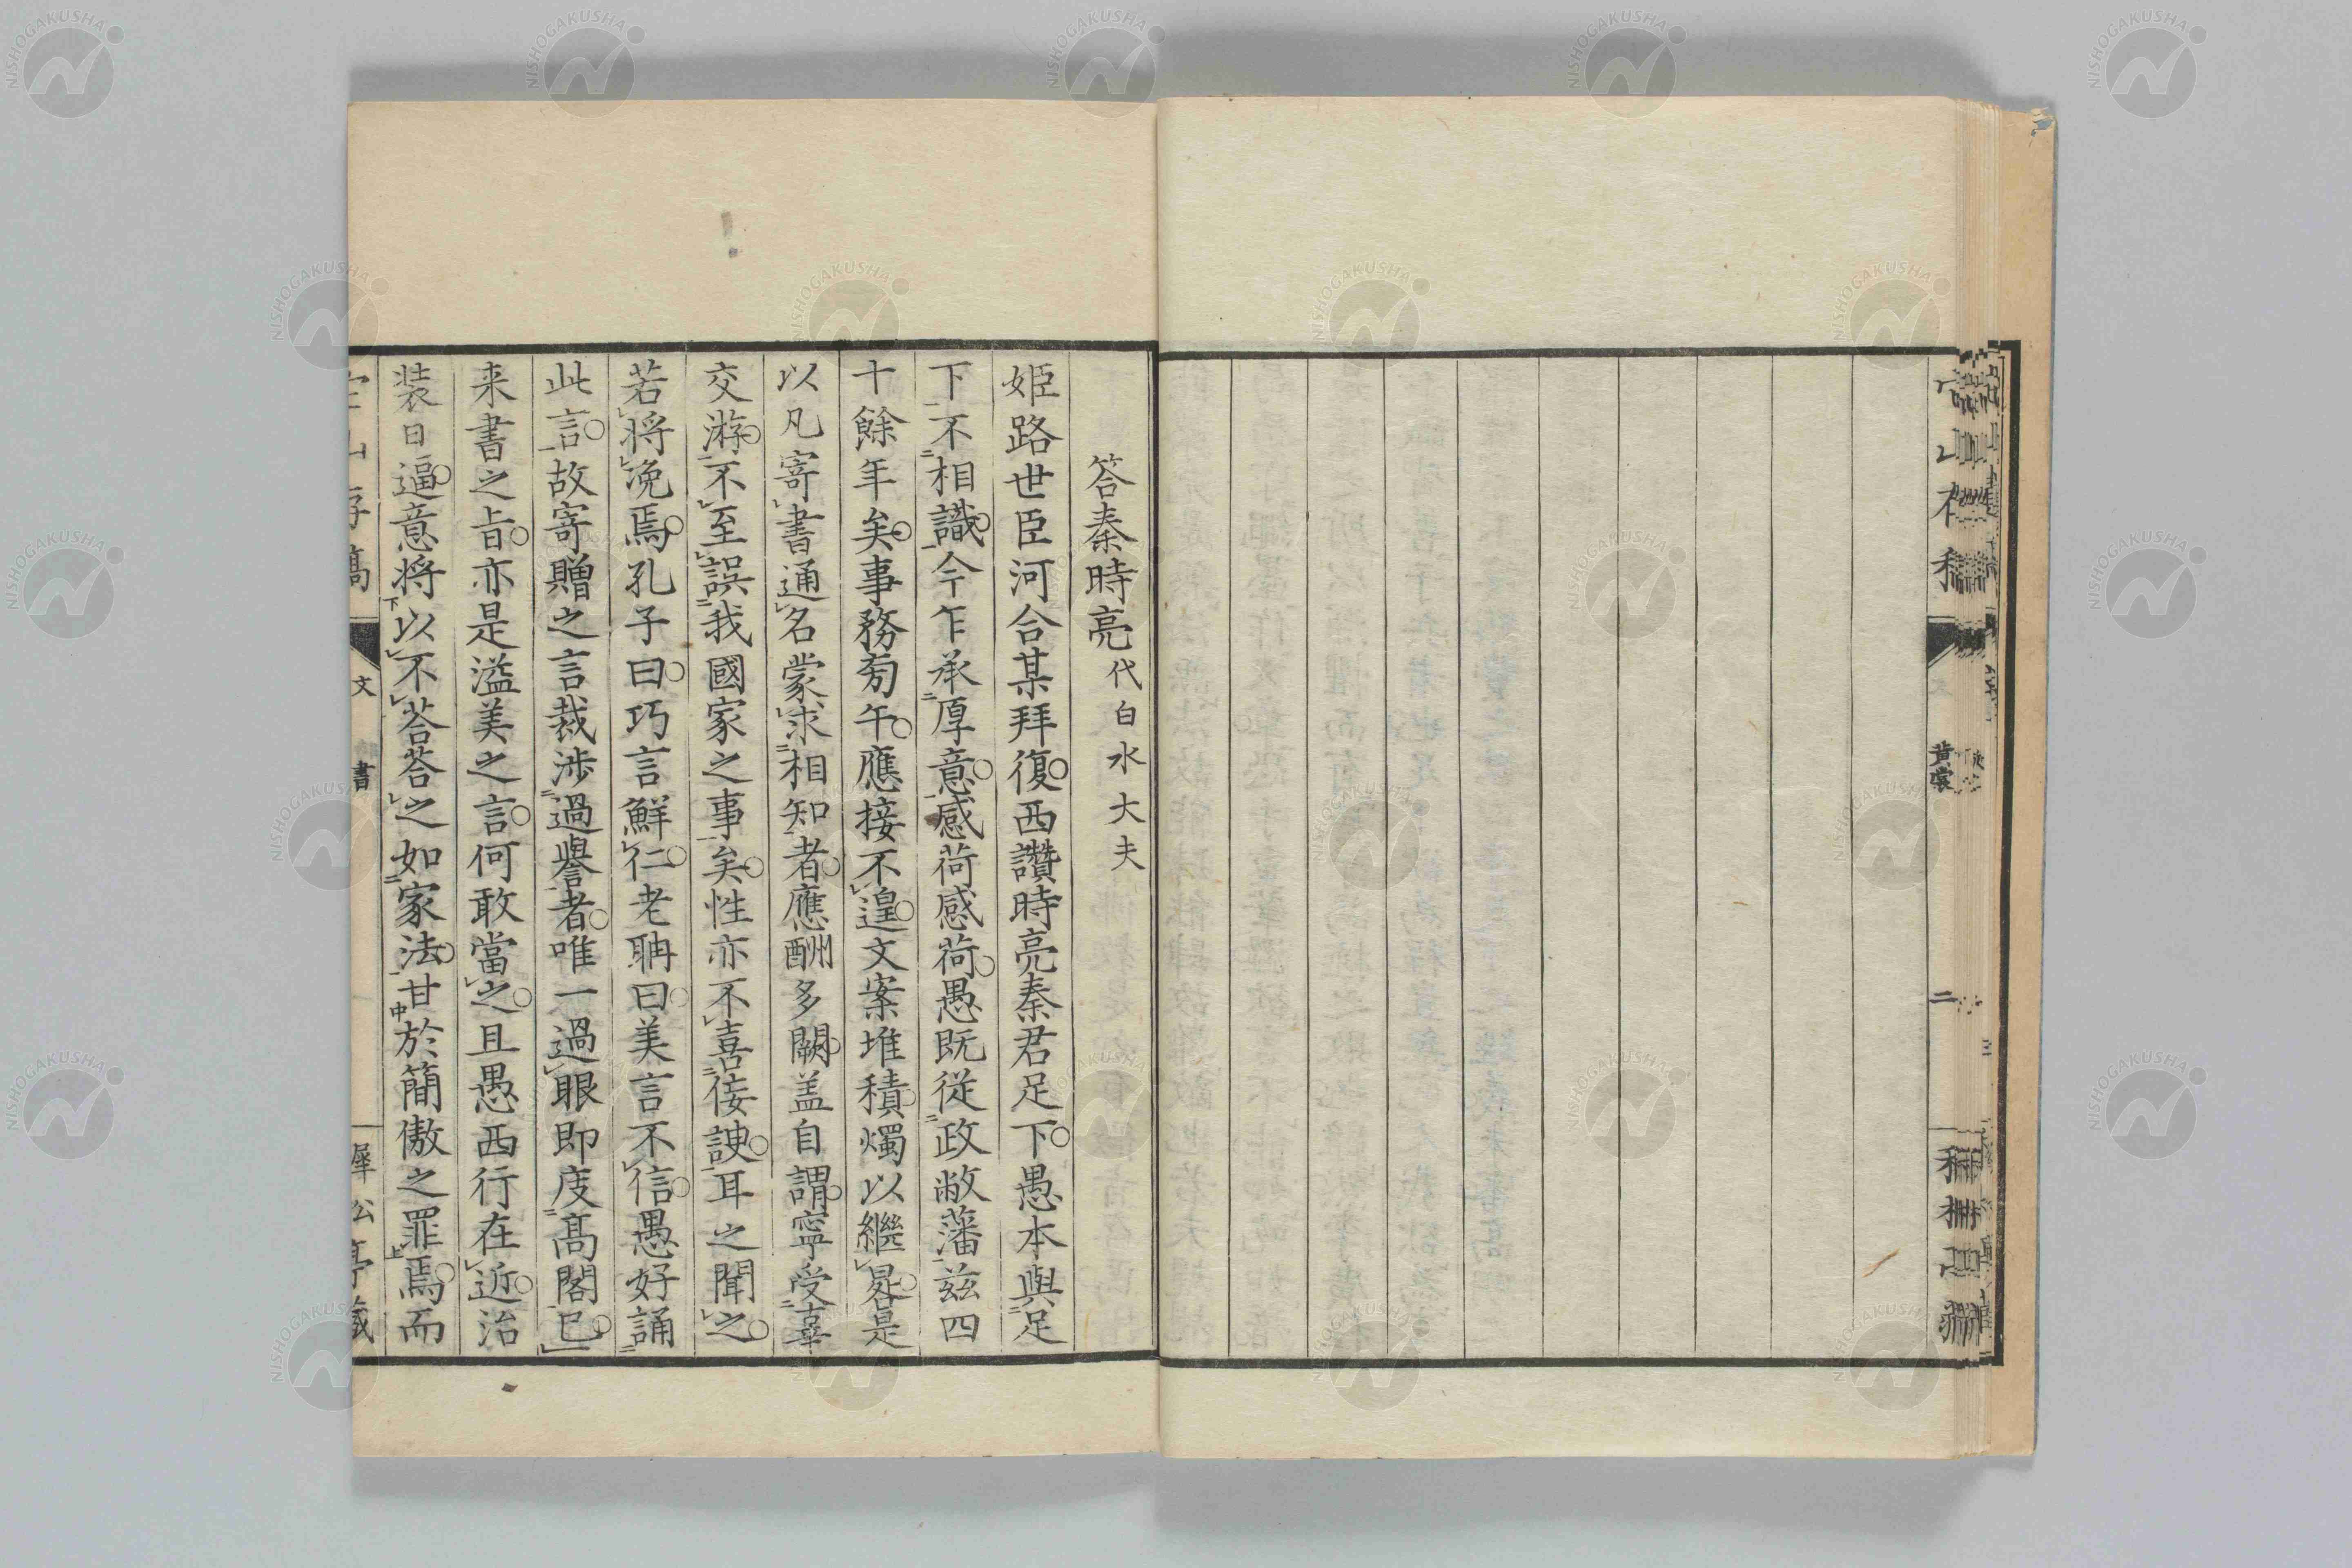 答秦時亮代白水大夫
姫路世臣河合某拜復西讚時亮秦君足下愚本與足
下不相識今乍承厚意感荷感荷愚既從政敝藩兹四
十餘年矣事務旁午應接不遑文案堆積燭以繼晷是
以凡寄書通名蒙求相知者應酬多闕盖自謂寧受辜
交游不至誤我國家之事矣性亦不喜佞諛耳之聞之
若將浼焉孔子曰巧言鮮仁老聃曰美言不信愚好誦
此言故寄贈之言裁涉過譽者唯一過眼即庋髙閣已
来書之旨亦是溢美之言何敢當之且愚西行在近治
装日逼意将以不荅荅之如家法甘於簡傲之罪焉而
文
書
黄裳
二
NISHOGAKUSHA